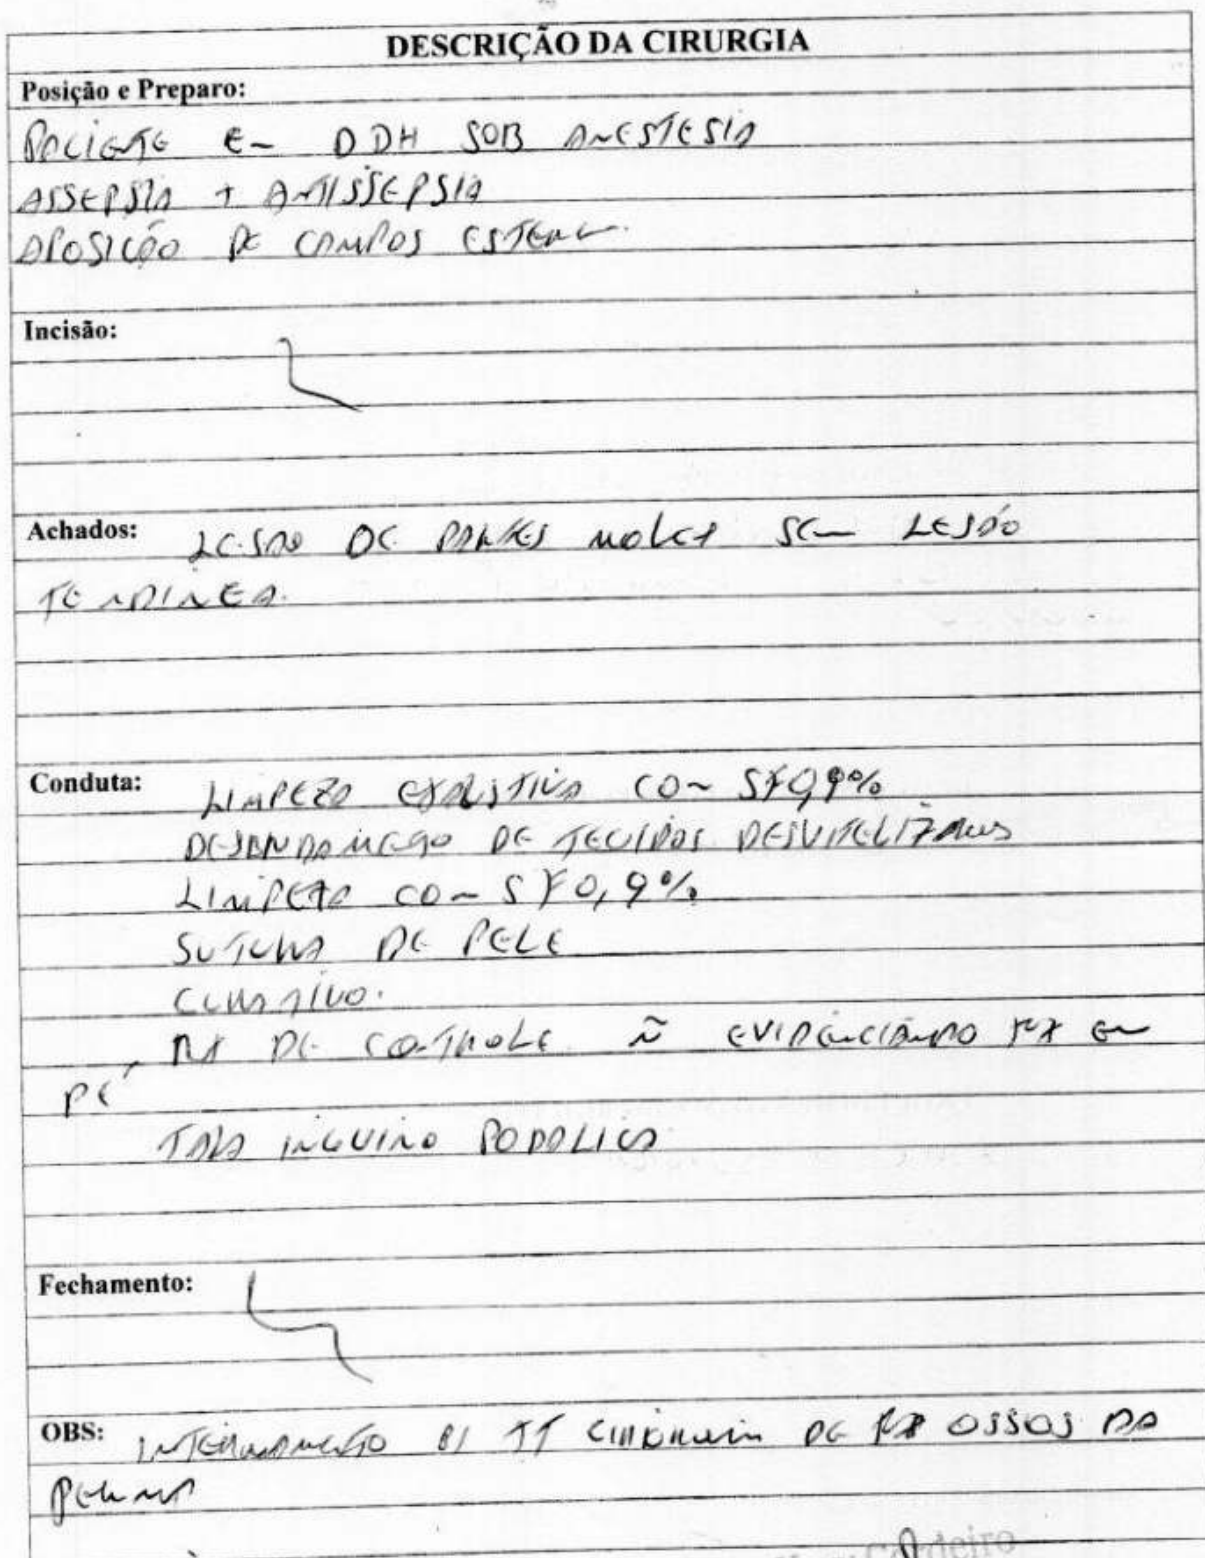 DESCRIÇÃO DA CIRURGIA
Posição e Preparo:
PACIENTE EM DDH SOB ANESTESIA
ASSEPSIA + ANTISSEPSIA
APOSIÇÃO DE CAMPOS
Incisão:
Achados: LESÃO DE PARTES MOLES SEM LESÃO
TENDINEA.
Conduta: LIMPEZA EXAUSTIVA COM SF0,9%
DE TECIDOS DESVITELIZADOS
LIMPEZA COM SF0,9%
SUTURA DE PELE
CURATIVO.
RX DE CONTROLE Ñ EVIDENCIANDO FX EM
PÉ
TALA INGUINO PODALICA
Fechamento:
OBS: INTERNAMENTO P/ TT CIRURGICO DE FX OSSOS DA
PERNA
Cordeiro